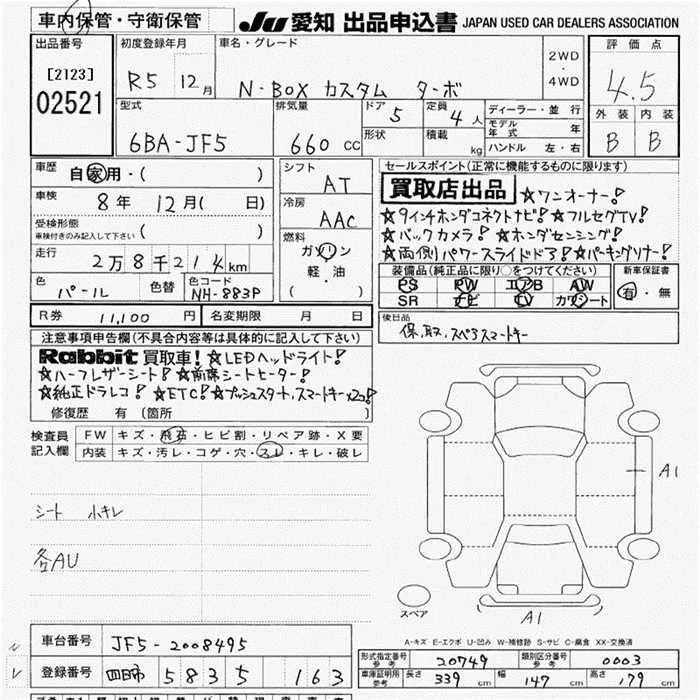 車内保管・守衛保管
JU 愛知 出品申込書 JAPAN USED CAR DEALERS ASSOCIATION
出品番号 初度登録年月 車名・グレード 評価点
[2123]
02521
R5 12月 N-BOX カスタム ターボ 2WD・4WD 4.5
型式 排気量 ドア 5 定員 4人 ディーラー・並行 外装 内装
6BA-JF5 660cc 形状 積載 kg モデル年式 年 B B
ハンドル 左・右
車歴 自家用・( ) シフト AT セールスポイント(正常に機能するものに限ります)
買取店出品 ☆ワンオーナー!
車検 8年 12月( 日) 冷房 AAC ☆9インチホンダコネクトナビ! ☆フルセグTV!
受検形態 ☆バックカメラ! ☆ホンダセンシング!
車検付きのみ記入して下さい ( ) 燃料 ☆両側パワースライドドア! ☆パーキングソナー!
走行 2万8千214km ガソリン 装備品(純正品に限り○をつけてください) 新車保証書
軽・油 PS PW エアB AW 有・無
色 パール 色替 色コード NH-883P ( ) SR ナビ TV カワシート
R券 11,100 名変期限 月 日 後日品
保、取、スペ3スマートキー
注意事項申告欄(不具合内容等は具体的に記入して下さい)
Rabbit 買取車! ☆LEDヘッドライト!
☆ハーフレザーシート! ☆前席シートヒーター!
☆純正ドラレコ! ☆ETC! ☆プッシュスタート、スマートキー×2コ!
修復歴 有 (箇所 )
検査員記入欄 FW キズ・飛石・ヒビ割・リペア跡・X要
内装 キズ・汚レ・コゲ・穴・スレ・キレ・破レ
A1
シート 小キレ
各AU
スペア
A1
A-キズ E-エクボ U-凹み W-補修跡 S-サビ C-腐食 XX-交換済
車台番号 JF5-2008495
形式指定番号 参考 20749 類別区分番号 参考 0003
登録番号 四日市 583 5 163
車庫証明所 参考 長さ 339cm 幅 147cm 高さ 179cm